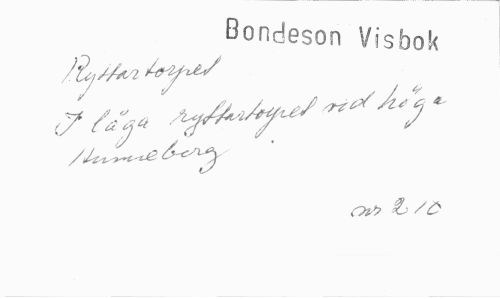 Bondeson Visbok
Ryttartorpet
I låga ryttartorpet vid höga
Hunneberg
nr 210